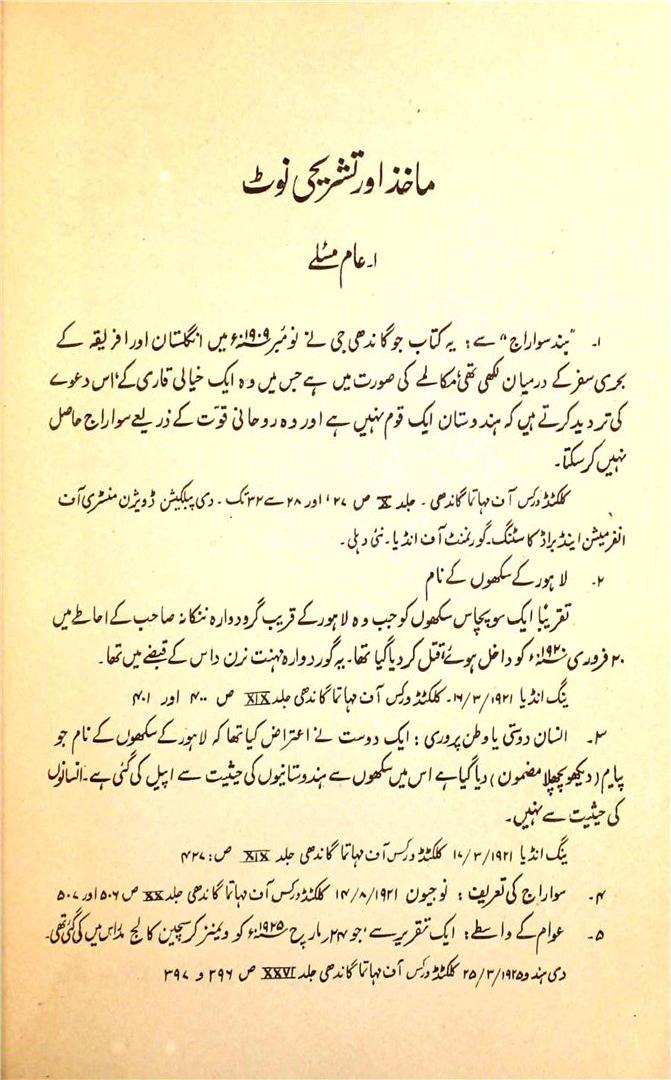 ماخذ اور تشریحی نوٹ
۱۔ عام مسئلے
۱۔ "ہند سواراج" سے: یہ کتاب جو گاندھی جی نے نومبر ۱۹۰۹ء میں انگلستان اور افریقہ کے
بحری سفر کے درمیان لکھی تھی، مکالمے کی صورت میں ہے جس میں وہ ایک خیالی قاری کے اس دعوے
کی تردید کرتے ہیں کہ ہندوستان ایک قوم نہیں ہے اور وہ روحانی قوّت کے ذریعے سواراج حاصل
نہیں کر سکتا۔
کلکٹڈ ورکس آف مہاتما گاندھی۔ جلد X ص ۲۷، اور ۲۸ سے ۳۲ تک۔ دی پبلیکیشن ڈویژن منسٹری آف
انفرمیشن اینڈ براڈ کاسٹنگ۔ گورنمنٹ آف انڈیا۔ نئی دہلی۔
۲۔ لاہور کے سکھوں کے نام
تقریباً ایک سو پچاس سکھوں کو جب وہ لاہور کے قریب گرودوارہ ننکانہ صاحب کے احاطے میں
۲۰ فروری ۱۹۲۰ء کو داخل ہوئے قتل کر دیا گیا تھا۔ یہ گوردوارہ مہنت نرن داس کے قبضے میں تھا۔
ینگ انڈیا ۱۶/۳/۱۹۲۱۔ کلکٹڈ ورکس آف مہاتما گاندھی جلد XIX ص ۴۰۰ اور ۴۰۱
۳۔ انسان دوستی یا وطن پروری: ایک دوست نے اعتراض کیا تھا کہ لاہور کے سکھوں کے نام جو
پیام (دیکھو پچھلا مضمون) دیا گیا ہے اس میں سکھوں سے ہندوستانیوں کی حیثیت سے اپیل کی گئی ہے۔ انسانوں
کی حیثیت سے نہیں۔
ینگ انڈیا ۱۷/۳/۱۹۲۱ کلکٹڈ ورکس آف مہاتما گاندھی جلد XIX ص: ۴۲۷
۴۔ سواراج کی تعریف: نوجیون ۱۴/۸/۱۹۲۱ کلکٹڈ ورکس آف مہاتما گاندھی جلد XX ص ۵۰۶ اور ۵۰۷
۵۔ عوام کے واسطے: ایک تقریر سے، جو ۲۴ مارچ ۱۹۲۵ء کو ویمنز کرسچین کالج مدراس میں کی گئی تھی۔
دی ہندو ۲۵/۳/۱۹۲۵ کلکٹڈ ورکس آف مہاتما گاندھی جلد XXVI ص ۳۹۶ و ۳۹۷